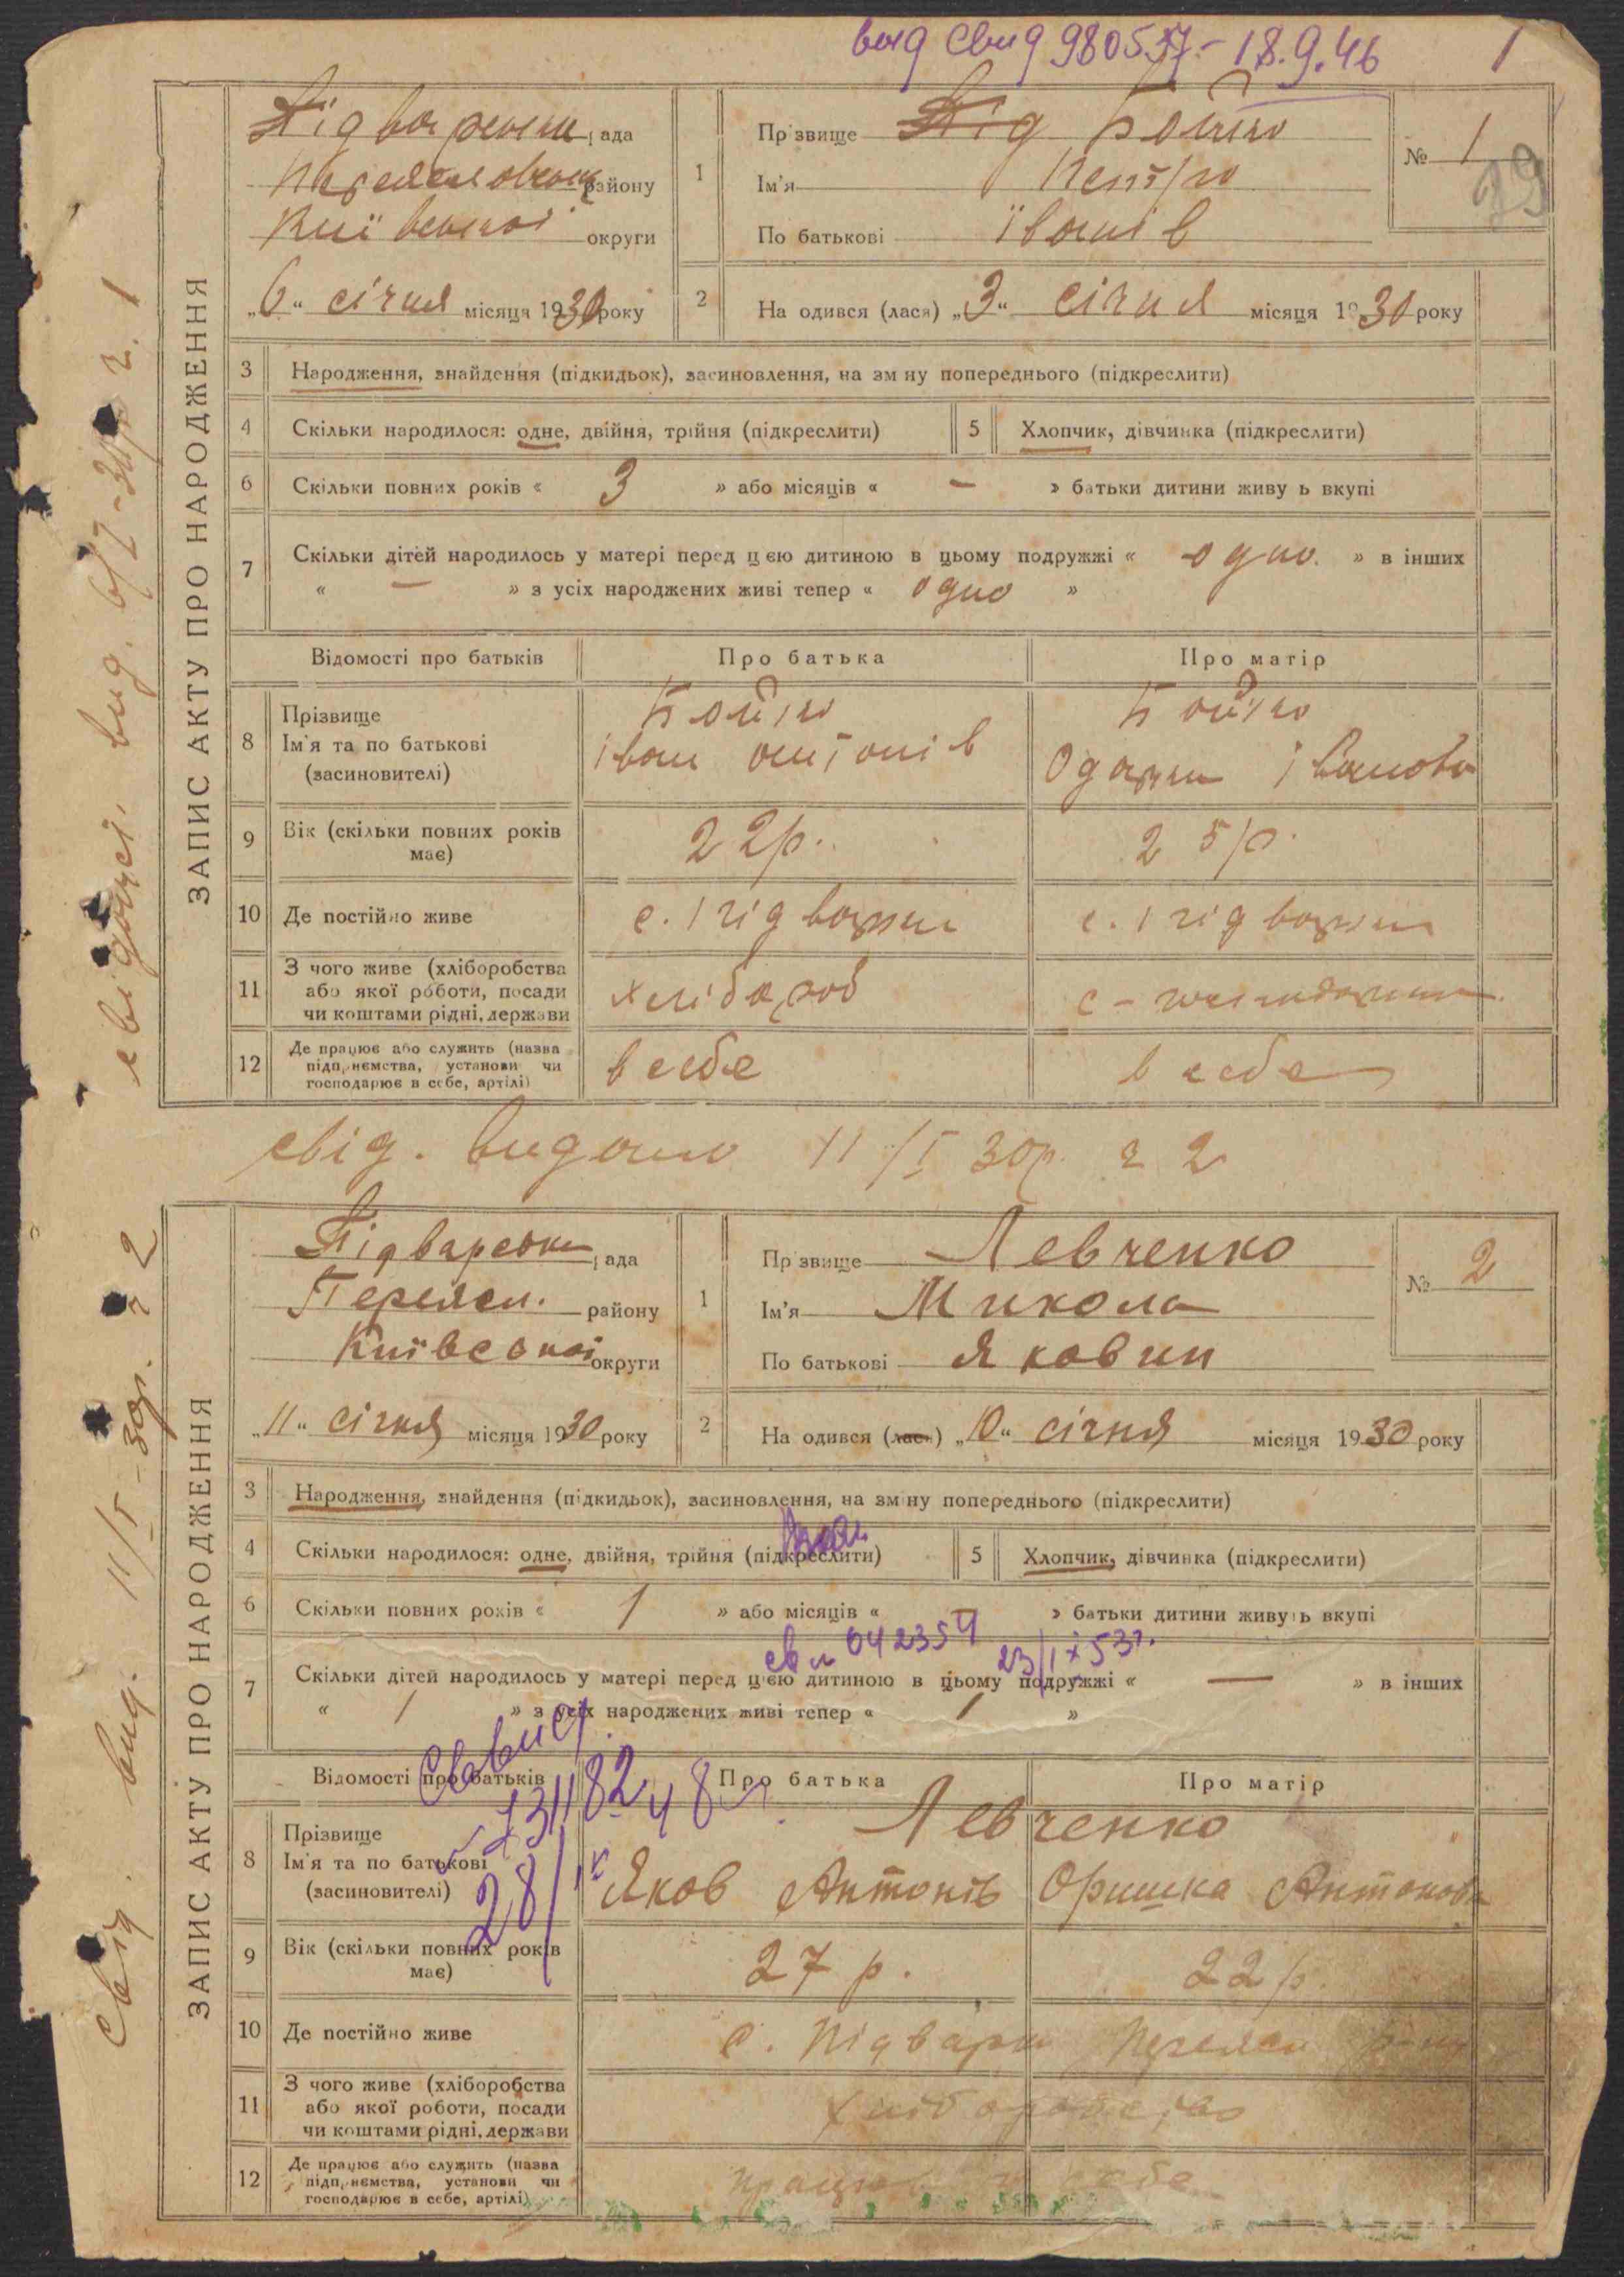 выд свид 980537 - 18.9.46
1
ЗАПИС АКТУ ПРО НАРОДЖЕННЯ
Підварська рада
Переяславського району
Київської округи
„6“ січня місяця 1930 року
1
Прізвище Бойко
Ім'я Петро
По батькові Іванів
№ 1
39
2
На одився (лася) „3“ січня місяця 1930 року
3 Народження, знайдення (підкидьок), засиновлення, на зм ну попереднього (підкреслити)
4 Скільки народилося: одне, двійня, трійня (підкреслити)
5 Хлопчик, дівчинка (підкреслити)
6 Скільки повних років « 3 » або місяців « — » батьки дитини живу ь вкупі
7 Скільки дітей народилось у матері перед цією дитиною в цьому подружжі « одно. » в інших
« — » з усіх народжених живі тепер « одно »
Відомості про батьків Про батька Про матір
8 Прізвище
Ім'я та по батькові
(засиновителі)
Бойко
Іван Антонів
Бойко
Одарка Іванова
9 Вік (скільки повних років
має)
22 р.
25 р.
10 Де постійно живе
с. Підварки
с. Підварки
11 З чого живе (хліборобства
або якої роботи, посади
чи коштами рідні, держави
хлібороб
12 Де працює або служить (назва
підп,иємства, установи чи
господарює в себе, артілі)
в себе
в себе
свідоцт. вид. 6/I - 30р ч. 1
свід. видано 11/I 30р. ч 2
ЗАПИС АКТУ ПРО НАРОДЖЕННЯ
Підварська рада
Переясл. району
Київської округи
„11“ січня місяця 1930 року
1
Прізвище Левченко
Ім'я Микола
По батькові Яковин
№ 2
2
На одився (лася) „10“ січня місяця 1930 року
3 Народження, знайдення (підкидьок), засиновлення, на зм ну попереднього (підкреслити)
4 Скільки народилося: одне, двійня, трійня (підкреслити)
5 Хлопчик, дівчинка (підкреслити)
6 Скільки повних років « 1 » або місяців « — » батьки дитини живуть вкупі
св л 042354 23/IX 53г.
7 Скільки дітей народилось у матері перед цією дитиною в цьому подружжі « — » в інших
« 1 » з усіх народжених живі тепер « 1 »
Відомості про батьків Про батька Про матір
8 Прізвище
Ім'я та по батькові
(засиновителі)
Левченко
Яков Антонів
Оришка Антонова
9 Вік (скільки повних років
має)
27 р.
22 р.
10 Де постійно живе
с. Підварки Переясл р-ну
11 З чого живе (хліборобства
або якої роботи, посади
чи коштами рідні, держави
хліборобство
12 Де працює або служить (назва
підп,иємства, установи чи
господарює в себе, артілі)
свід. вид. 11/I - 30р. ч 2